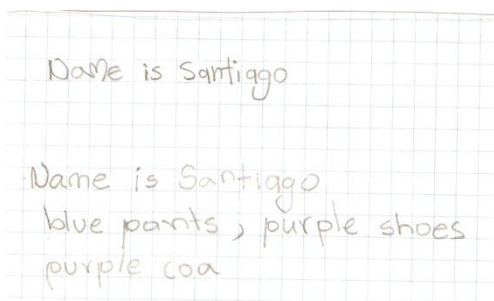 Name is Santiggo
Name is Santiggo
blue pants, purple shoes
purple coa